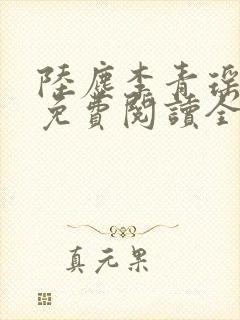 陸塵李青瑤
免費閱讀全
真元果